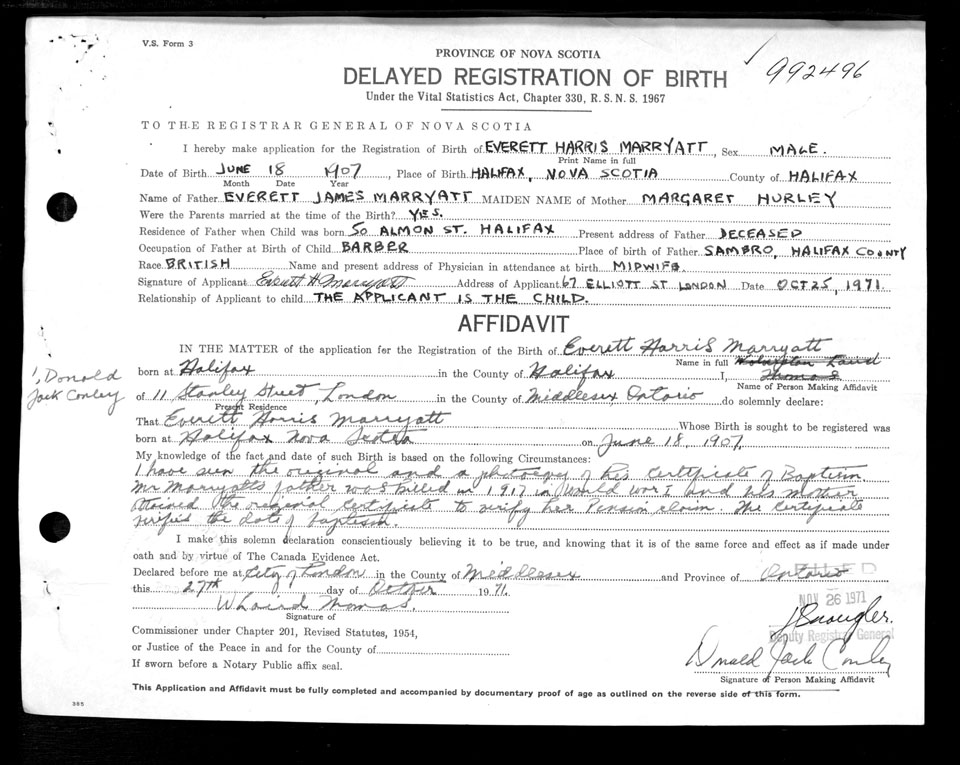 V.S. Form 3
PROVINCE OF NOVA SCOTIA
992496
DELAYED REGISTRATION OF BIRTH
Under the Vital Statistics Act, Chapter 330, R.S.N.S. 1967
TO THE REGISTRAR GENERAL OF NOVA SCOTIA
I hereby make application for the Registration of Birth of EVERETT HARRIS MARRYATT, Sex MALE.
Print Name in full
Date of Birth JUNE 18 1907, Place of Birth HALIFAX, NOVA SCOTIA County of HALIFAX
Month Date Year
Name of Father EVERETT JAMES MARRYATT MAIDEN NAME of Mother MARGARET HURLEY
Were the Parents married at the time of the Birth? YES.
Residence of Father when Child was born 50 ALMON ST. HALIFAX Present address of Father DECEASED
Occupation of Father at Birth of Child BARBER Place of birth of Father SAMBRO, HALIFAX COUNTY
Race BRITISH Name and present address of Physician in attendance at birth MIDWIFE.
Signature of Applicant Everett H Marryatt Address of Applicant 67 ELLIOTT ST LONDON Date OCT 25, 1971.
Relationship of Applicant to child THE APPLICANT IS THE CHILD.
AFFIDAVIT
IN THE MATTER of the application for the Registration of the Birth of Everett Harris Marryatt
Name in full
born at Halifax in the County of Halifax I, Laird Thomas
I, Donald Jack Conley
Name of Person Making Affidavit
of 11 Stanley Street, London in the County of Middlesex Ontario do solemnly declare:
Present Residence
That Everett Harris Marryatt Whose Birth is sought to be registered was
born at Halifax Nova Scotia on June 18, 1907.
My knowledge of the fact and date of such Birth is based on the following Circumstances:
I have seen the original and a photocopy of his Certificate of Baptism.
Mr Marryatt's father was killed in 1917 in World War I and his mother
obtained the original certificate to verify her Pension claim. The Certificate
verified the date of baptism.
I make this solemn declaration conscientiously believing it to be true, and knowing that it is of the same force and effect as if made under
oath and by virtue of The Canada Evidence Act.
Declared before me at City of London in the County of Middlesex and Province of Ontario
this 27th day of October 1971.
NOV 26 1971
W Laird Thomas.
Signature of
Deputy Registrar General
Commissioner under Chapter 201, Revised Statutes, 1954,
or Justice of the Peace in and for the County of
Donald Jack Conley
If sworn before a Notary Public affix seal.
Signature of Person Making Affidavit
This Application and Affidavit must be fully completed and accompanied by documentary proof of age as outlined on the reverse side of this form.
365